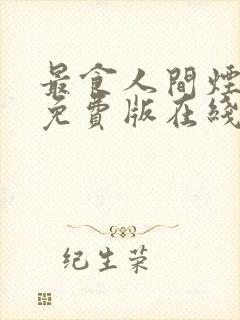 最食人間煙
免費版在綫
纪生荣